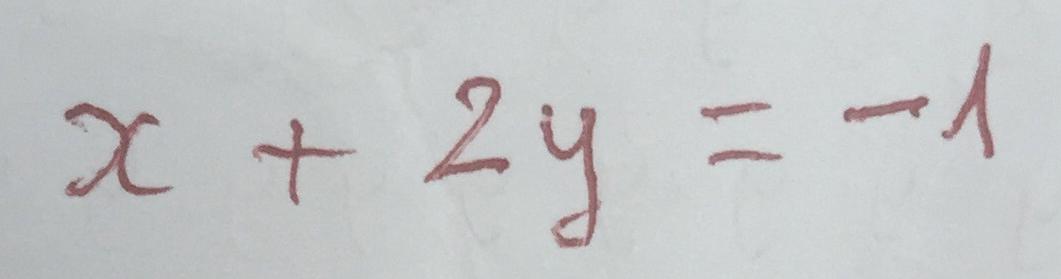 x + 2y = -1